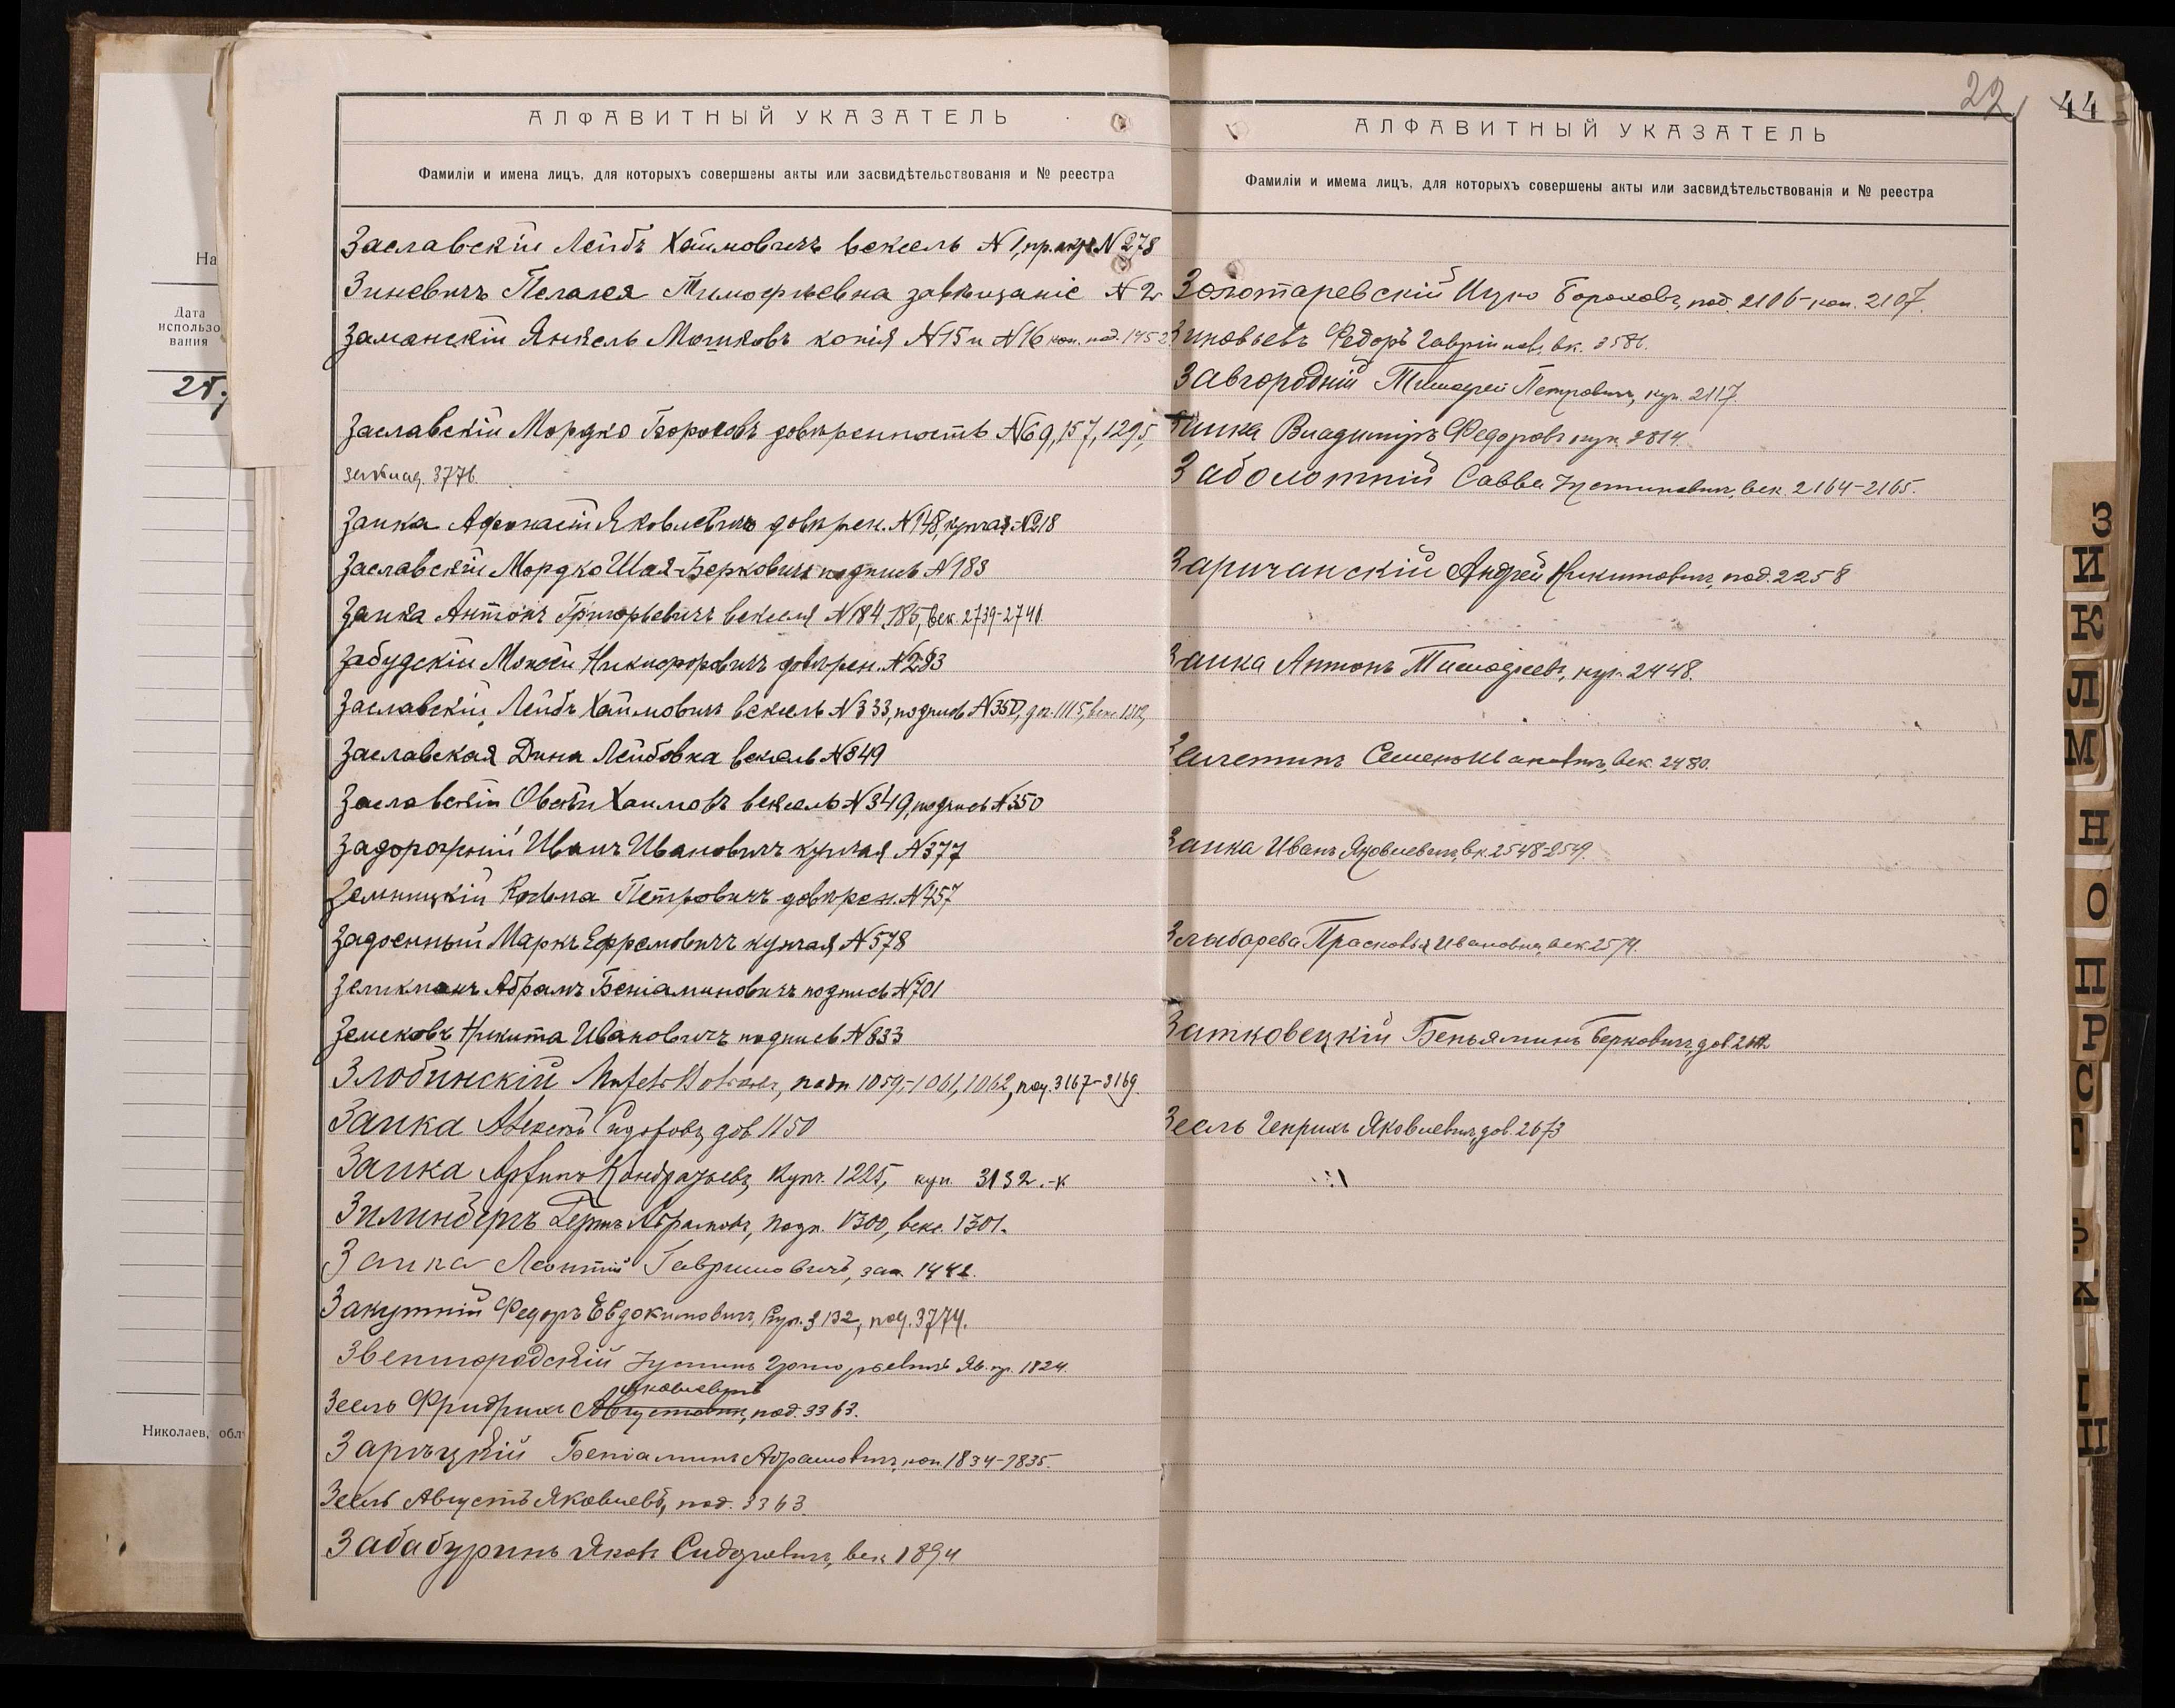 На
Дата
использо
вания
Николаев, обл
АЛФАВИТНЫЙ УКАЗАТЕЛЬ
Фамиліи и имена лицъ, для которыхъ совершены акты или засвидѣтельствованія и № реестра
Заславскій Лейбъ Хаимовичъ вексель №1, № 278
Зиневичъ Пелагея Тимофѣевна завѣщаніе №2
Заманскій Янкель Мошковъ копія №15 и №16 коп. под. 1452
Заславскій Мордко Бороховъ довѣренность №69, 157, 1295,
3776.
Заика Афонасій Яковлевичъ довѣрен. №148, купчая №218
Заславскій Мордко Шая-Берковичъ подпись №183
Заика Антонъ Григорьевичъ векселя №184, 185, век. 2739-2740
Забудскій Моисей Никифоровичъ довѣрен. №283
Заславскій Лейбъ Хаимовичъ вексель №333, подпись №350, 1115,
Заславская Дина Лейбовна вексель №349
Заславскій Овсѣй Хаимовъ вексель №349, подпись №350
Задорожній Иванъ Ивановичъ купчая №377
Земницкій Козьма Петровичъ довѣрен. №457
Задоенный Маркъ Ефремовичъ купчая №578
Зеликманъ Абрамъ Беніаминовичъ подпись №701
Земсковъ Никита Ивановичъ подпись №833
Злобинскій подп 1059,-1061, 1062, под. 3167-3169.
Заика Алексѣй Сидоровъ, дов 1150
Заика Кондратьевъ, купч. 1225, куп. 3132.-к
Зилинбергъ Герш Абрамовъ, подп. 1300, векс. 1301.
Заика Леонтій Гавриловичъ, зав. 1442.
Закутній Федоръ Евдокимовичъ, Куп. 3132, под. 3774.
Звенигородскій Іустинъ Григорьевичъ 1824.
Яковлевичъ
Зеель Фридрихъ Августович, под. 3363.
Зарѣцкій Беніаминъ Абрамовичъ, коп. 1834-1835.
Зеель Августъ Яковлевъ, под. 3363.
Забабуринъ Яковъ Сидоровичъ, век 1894
22
44
АЛФАВИТНЫЙ УКАЗАТЕЛЬ
Фамиліи и имема лицъ, для которыхъ совершены акты или засвидѣтельствованія и № реестра
Золотаревскій Ицко Бороховъ, под. 2106-коп. 2107.
Зиновьевъ Федоръ Гавриіловъ, вк. 3586.
Завгородній Тимофей Петровичъ, куп. 2117.
Заика Владиміръ Федоровъ куп. 2814.
Заболотній Савва Іустиновичъ, век. 2164-2165.
Заричанскій Андрей Никитовичъ, под. 2258
Заика Антонъ Тимофеевъ, куп. 2448.
Семенъ Ивановичъ, век. 2480.
Заика Иванъ Яковлевичъ, вк. 2548-2549.
Прасковья Ивановна, век. 2574.
Затковецкій Беньяминъ Берковичъ, дов
Зеель Генрихъ Яковлевичъ, дов. 2673
З
И
К
Л
М
Н
О
П
Р
С
Т
Ф
Х